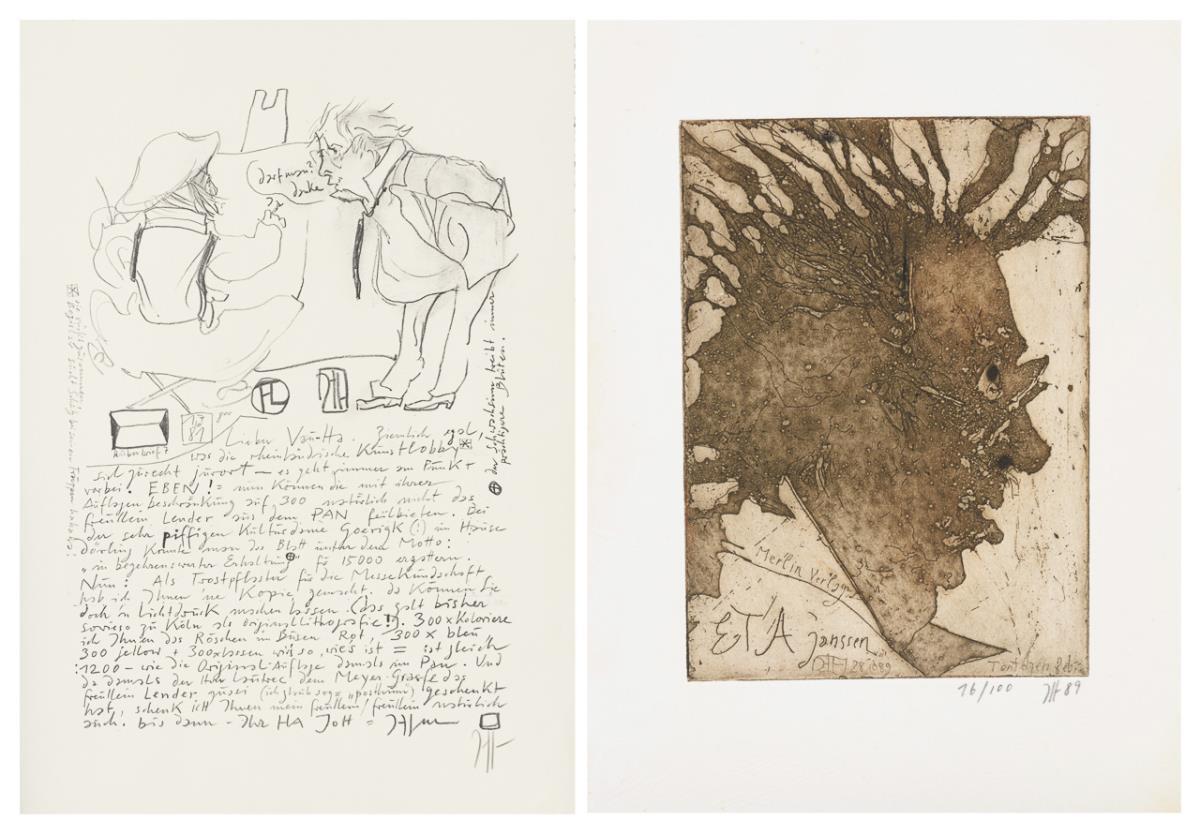 darf man?
danke
TL
JH
17
81
Lieber Vau-Ha. Ziemlich egal,
was die rheinländische Kunstlobby
sich zurecht juriert — es geht immer am Punkt
vorbei. EBEN! = nun können die mit ihrer
Auflagenbeschränkung auf 300 natürlich nicht das
freullein Lender aus dem PAN feilbieten. Bei
der sehr piffigen Kulturdame Goerigk (!) im Hause
Darling konnte man das Blatt unter dem Motto:
"in begehrenswerter Erhaltung" fö 15000 ergattern.
Nun: Als Trostpflaster für die Messekundschaft
hab ich Ihnen 'ne Kopie gemacht. da können Sie
doch 'n Lichtdruck machen lassen. (das galt bisher
sowieso zu Köln als originallithografie!). 300x Koloriere
ich Ihnen das Röschen im Busen Rot, 300 x bleu
300 jellow + 300x lassen wir's so, wie's ist = ist gleich
:1200 - wie die Original-Auflage damals im Pan. Und
da damals der Herr Lautrec dem Meyer-Graefe das
freullein Lender quasi (ich glaub sogar "posthum") geschenkt
hat, schenk ich Ihnen mein freullein/freullein natürlich
auch. bis dann - Ihr HA Jott =
der Schwachsinn treibt immer
prächtigere Blüten.
Merlin Verlag
E.T.A Janssen
JH 28 10 89
16/100 JH 89